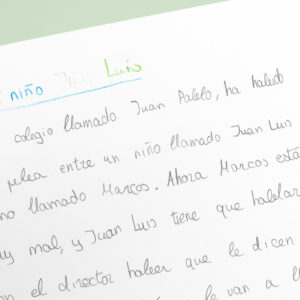 niño Luis
colegio llamado Juan Pablo, ha habido
pelea entre un niño llamado Juan Luis
llamado Marcos. Ahora Marcos está
mal, y Juan Luis tiene que hablar
el director haber que le dicen
le van a